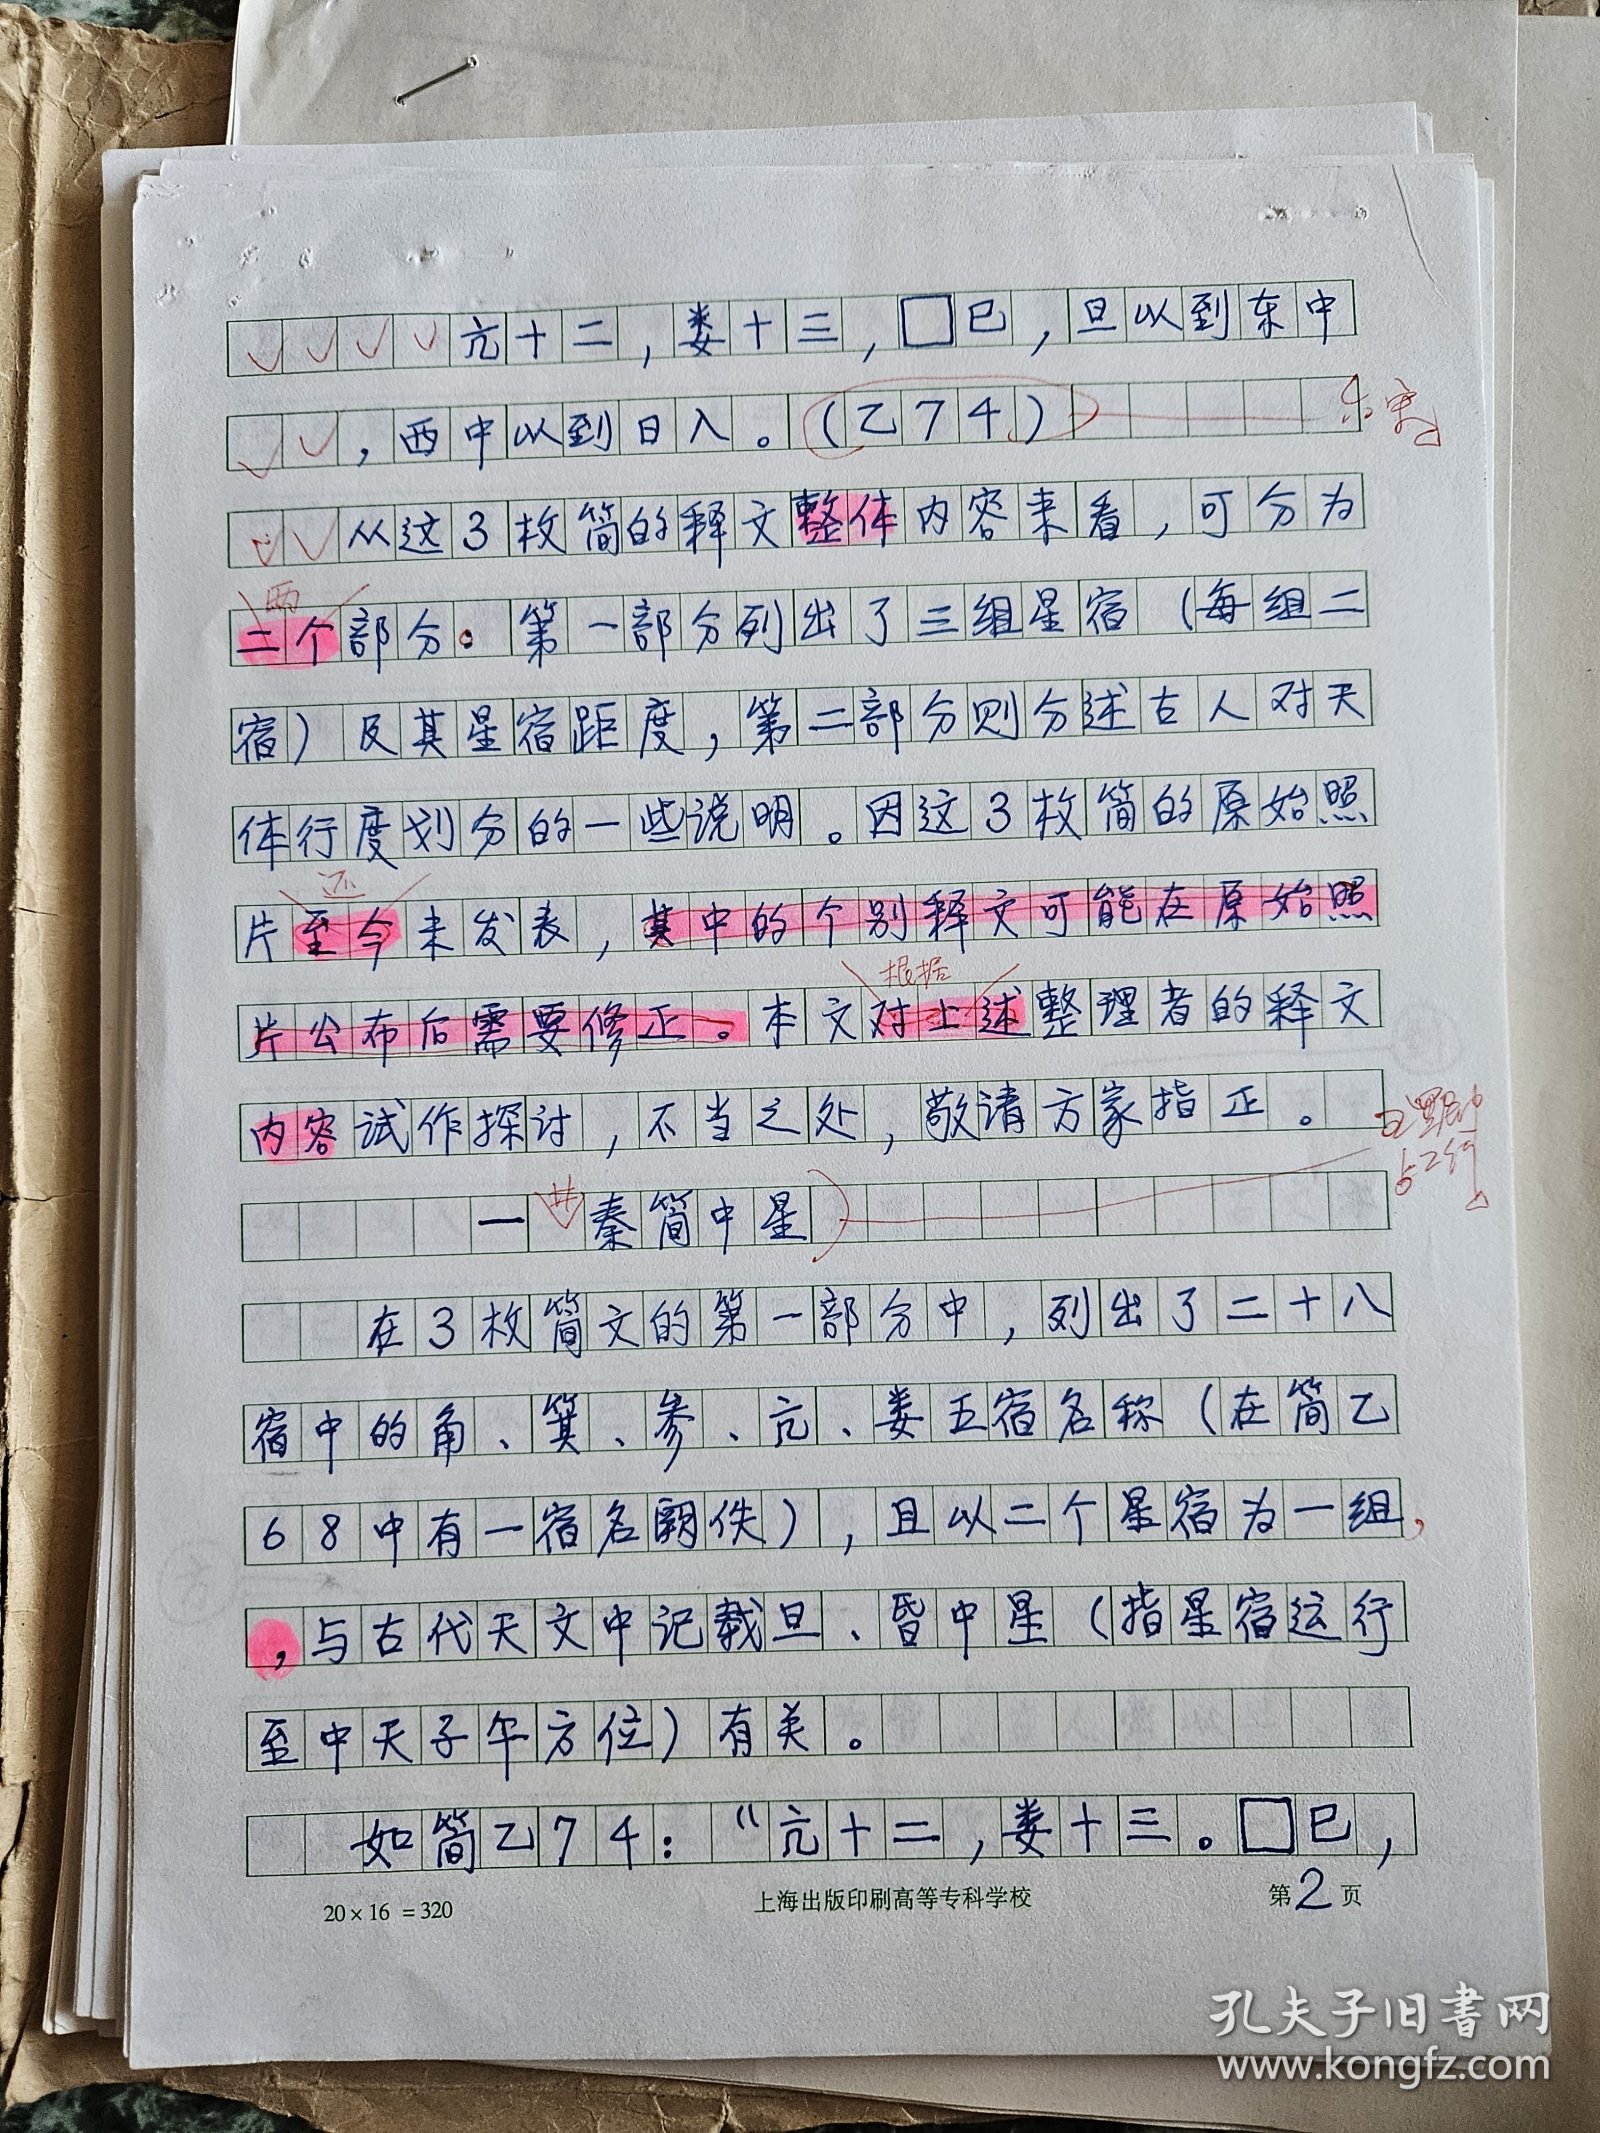 亢十二，娄十三，□巳，旦以到东中
，西中以到日入。（乙74）
从这3枚简的释文整体内容来看，可分为
两
二个部分。第一部分列出了三组星宿（每组二
宿）及其星宿距度，第二部分则分述古人对天
体行度划分的一些说明。因这3枚简的原始照
还
片至今未发表，其中的个别释文可能在原始照
根据
片公布后需要修正。本文对上述整理者的释文
内容试作探讨，不当之处，敬请方家指正。
一 秦简中星
在3枚简文的第一部分中，列出了二十八
宿中的角、箕、参、亢、娄五宿名称（在简乙
68中有一宿名阙佚），且以二个星宿为一组，
，与古代天文中记载旦、昏中星（指星宿运行
至中天子午方位）有关。
如简乙74：“亢十二，娄十三。□巳，
20×16=320 上海出版印刷高等专科学校 第2页
孔夫子旧书网
www.kongfz.com